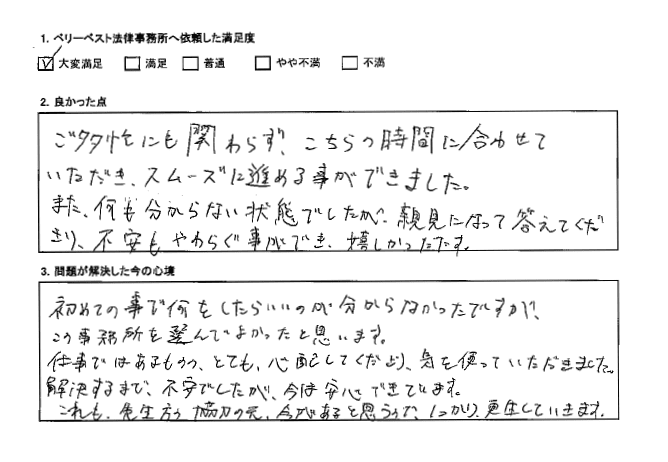 1. ベリーベスト法律事務所へ依頼した満足度
☑ 大変満足 □ 満足 □ 普通 □ やや不満 □ 不満
2. 良かった点
ご多忙にも関わらず、こちらの時間に合わせて
いただき、スムーズに進める事ができました。
また、何も分からない状態でしたが、親見になって答えてくだ
さり、不安もやわらぐ事ができ、嬉しかったです。
3. 問題が解決した今の心境
初めての事で何をしたらいいのか分からなかったですが、
この事務所を選んでよかったと思います。
仕事ではあるものの、とても、心配してくださり、気を使っていただきました。
解決するまで、不安でしたが、今は安心できています。
これも、先生方の協力の元、今があると思うので、しっかり、更生していきます。